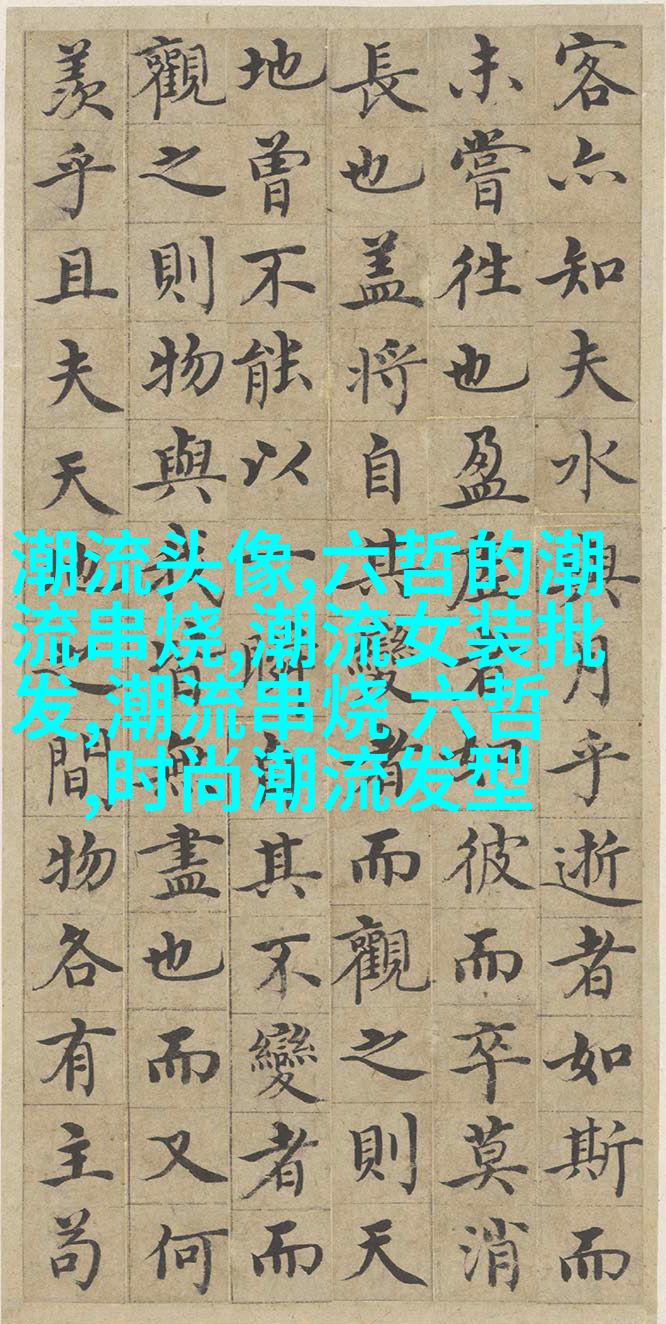 客亦知夫水與月乎逝者如斯而
未嘗往也盈虛者如彼而卒莫消
長也盖将自其變者而觀之則天
地曾不能以一瞬自其不變者而
觀之則物與我皆無盡也而又何
羨乎且夫天地之間物各有主苟
潮流头像,六哲的潮
流串烧,潮流女装批
发,潮流串烧 六哲
,时尚潮流发型